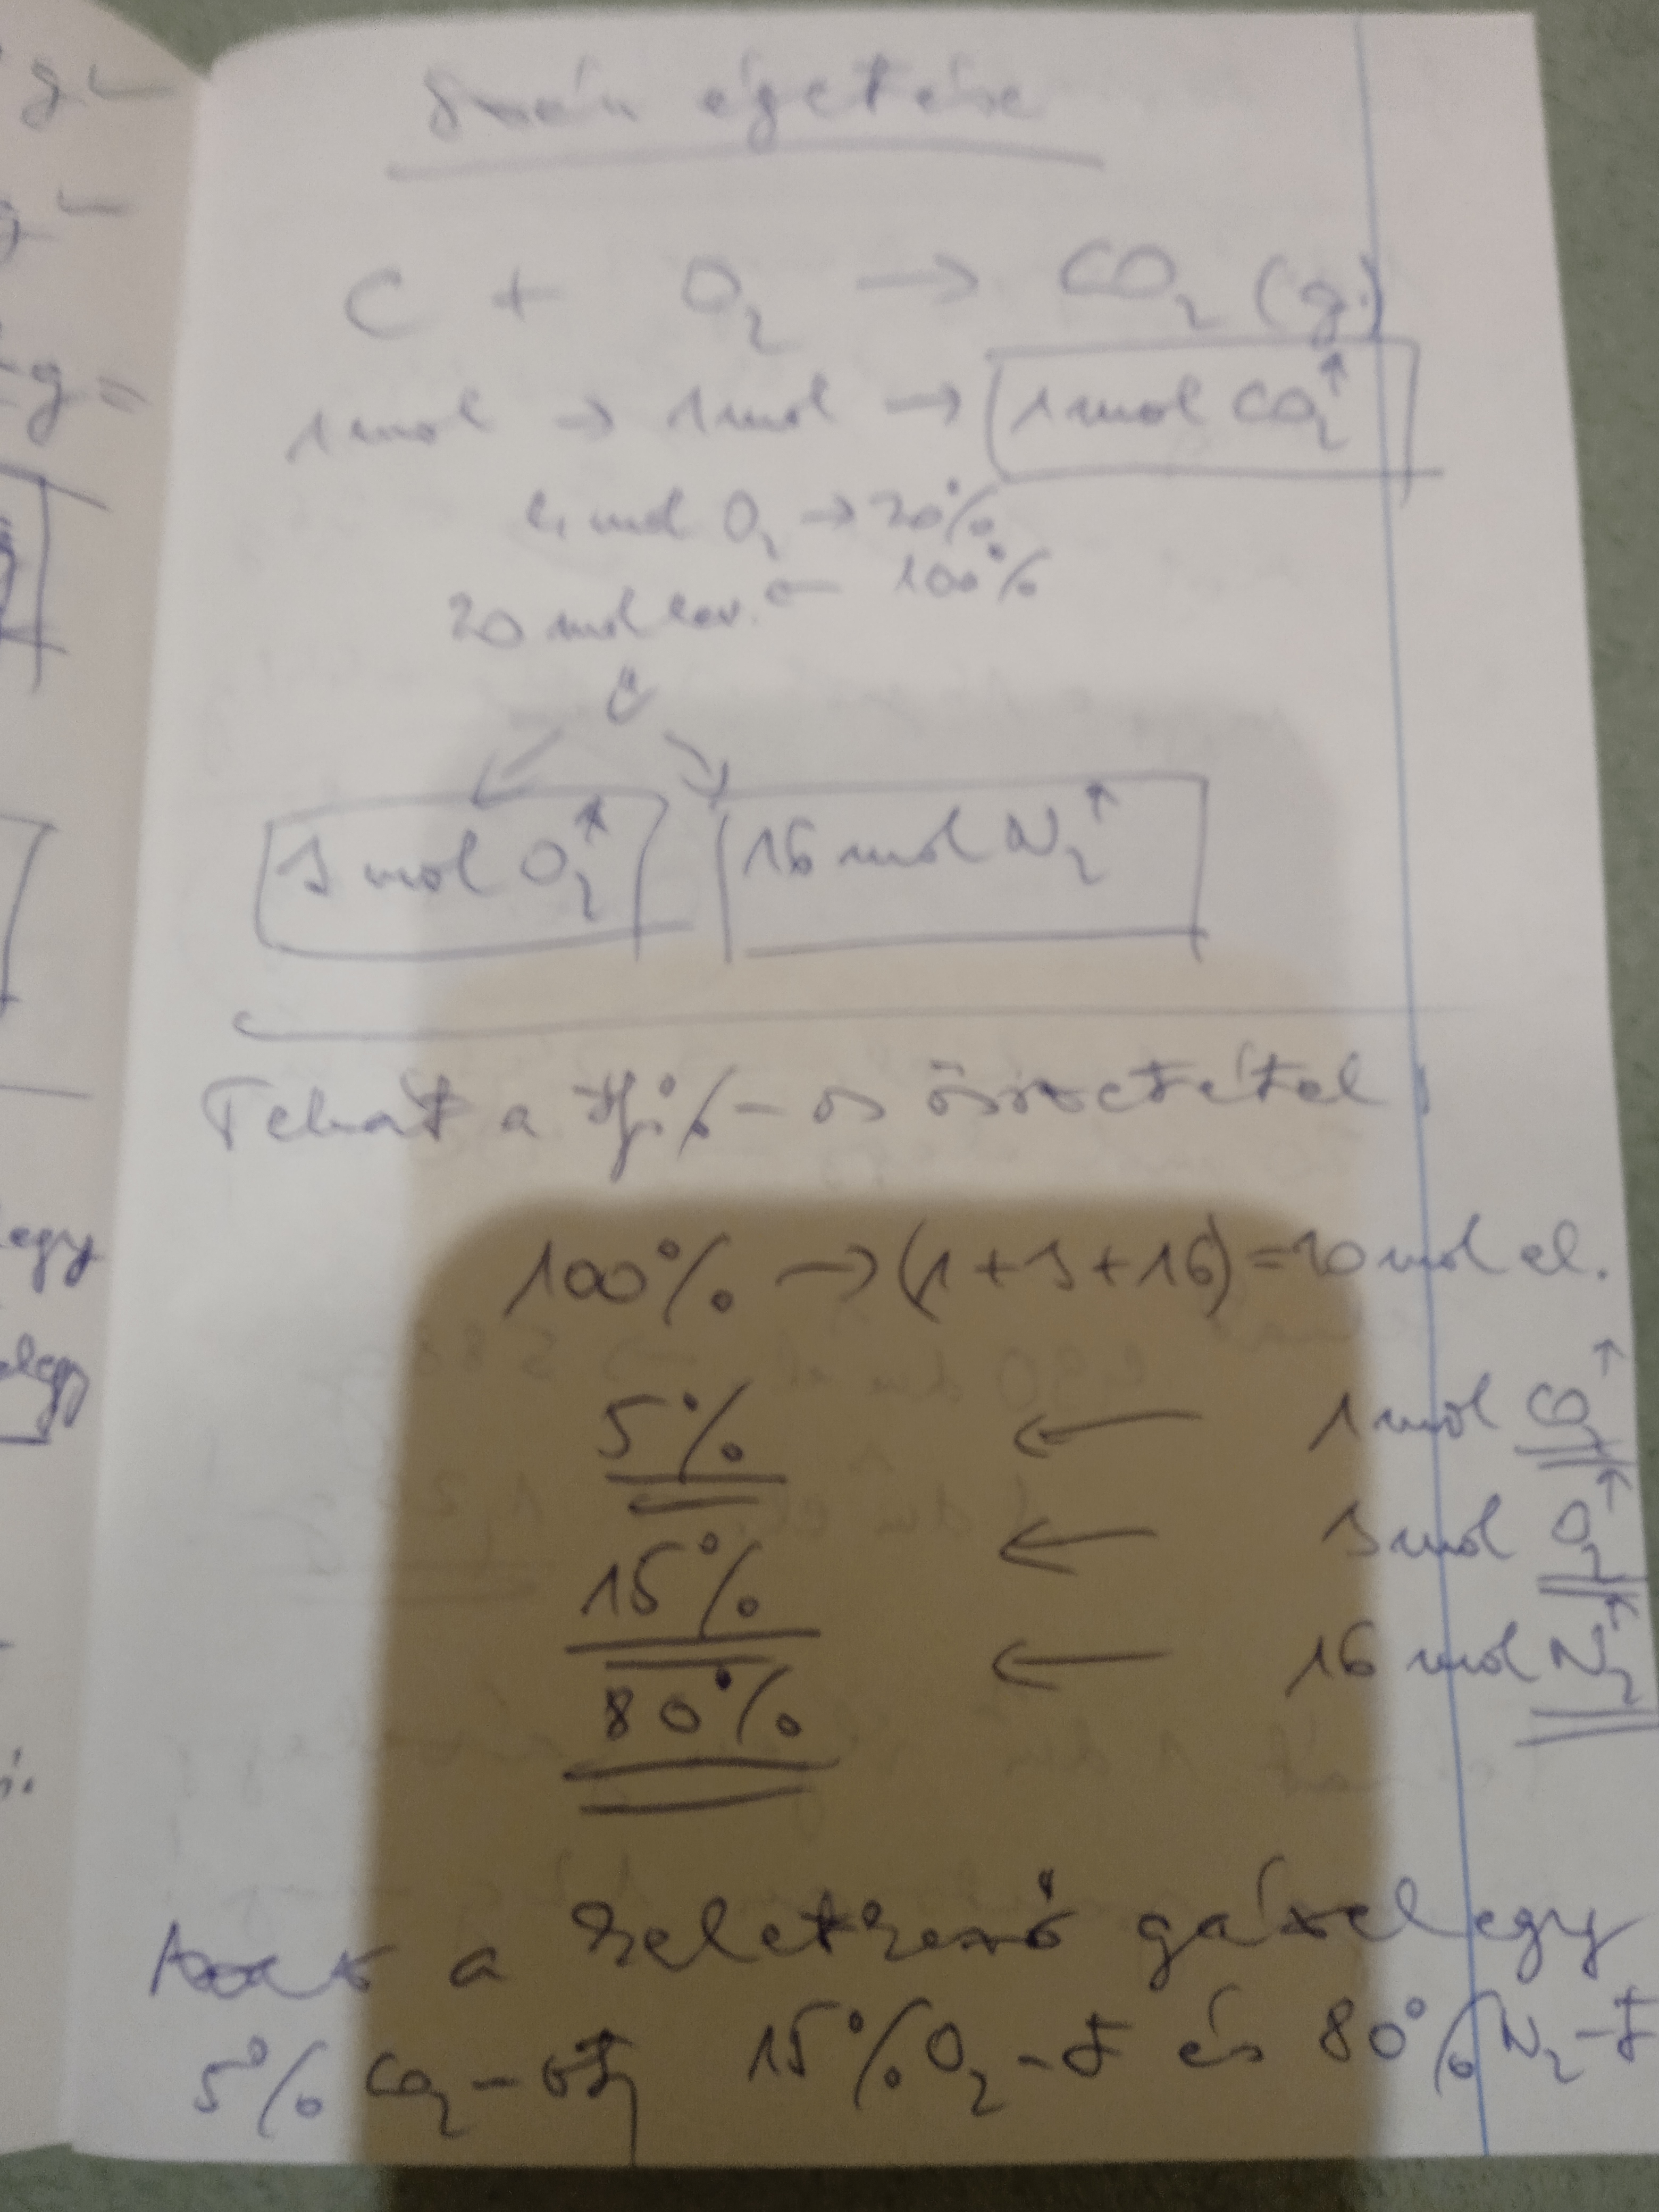 g
Szén égetése
g
C + O₂ → CO₂ (g.)
g =
1 mol → 1 mol → 1 mol CO₂↑
4 mol O₂ → 20%
20 mol lev. ← 100%
3 mol O₂↑ 16 mol N₂↑
Tehát a tf.%-os összetétel
100% → (1+3+16) = 20 mol el.
legy
5% ← 1 mol CO₂↑
elegy
15% ← 3 mol O₂↑
80% ← 16 mol N₂↑
Azaz a keletkező gázelegy
5% CO₂-ot, 15% O₂-t és 80% N₂-t